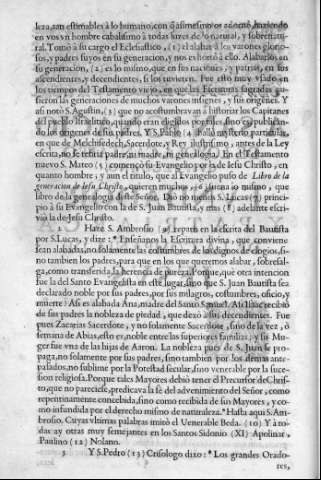 leza, tan estimables à lo humano, con
en vos vn hombre cabalissimo à todas luzes de lo natural, y sobrenatu-
ral. Tomò à su cargo el Eclesiastico, (1) el alabar à los varones glorio-
sos, y padres suyos en su generacion, y nos exhortò à ello. Alabarlos en
su generacion, (2) es lo mismo, que en sus naciones, y patrias, en sus
ascendientes, y decendientes, si los tuvieren. Fue esto muy vsado en
los tiempos del Testamento viejo, en que las Escrituras sagradas pu-
sieron las generaciones de muchos varones insignes, y sus origenes. Y
assi notò S. Agustin, (3) que no acostumbravan à historiar los Capitanes
del pueblo Israelitico, quando eran elegidos por tales, sino es publican-
do los origenes de sus padres. Y S. Pablo (4) hallò mysterio particular,
en que de Melchisedech, Sacerdote, y Rey ilustrissimo, antes de la Ley
escrita, no se refirio padre, ni madre, ni genealogia. En el Testamento
nuevo S. Mateo (5) començò su Evangelio por la de Jesu Christo, en
quanto hombre, y aun el titulo, que al Evangelio puso de Libro de la
generacion de Jesu Christo, quieren muchos, (6) suene lo mismo, que
libro de la genealogia deste Señor. Diò no menos S. Lucas (7) princi-
pio à su Evangelio con la de S. Juan Bautista, y mas (8) adelante escri-
viò la de Jesu Christo.
2 Haze S. Ambrosio (9) reparo en la escrita del Bautista
por S. Lucas, y dize: * Enseñanos la Escritura divina, que conviene
sean alabadas, no solamente las costumbres de los dignos de elogios, si-
no tambien los padres, para que en los que queremos alabar, sobresal-
ga, como transferida, la herencia de pureza. Porque, què otra intencion
fue la del Santo Evangelista en este lugar, sino que S. Juan Bautista sea
declarado noble por sus padres, por sus milagros, costumbres, oficio, y
muerte? Assi es alabada Ana, madre del Santo Samuel. Assi Isaac recibiò
de sus padres la nobleza de piedad, que dexò à sus decendientes. Fue
pues Zacarias Sacerdote, y no solamente Sacerdote, sino de la vez, ò
semana de Abias, esto es, noble entre las superiores familias, y su Mu-
ger fue vna de las hijas de Aaron. La nobleza pues de S. Juan se pro-
paga, no solamente por sus padres, sino tambien por los demàs ante-
passados, no sublime por la Potestad secular, sino venerable por la suces-
sion religiosa. Porque tales Mayores debiò tener el Precursor de Chris-
to, que no pareciesse, predicava la fè del advenimiento del Señor, como
repentinamente concebida, sino como recibida de sus Mayores, y co-
mo infundida por el derecho mismo de naturaleza. * Hasta aqui S. Am-
brosio. Cuyas vltimas palabras imitò el Venerable Beda. (10) Y à to-
das ay otras muy semejantes en los Santos Sidonio (XI) Apolinar,
Paulino (12) Nolano.
3 Y S. Pedro (13) Crisologo dixo: * Los grandes Orado-
res,